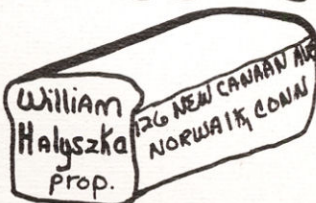 William
Halyszka
prop.
126 NEW CANAAN AVE
NORWALK, CONN